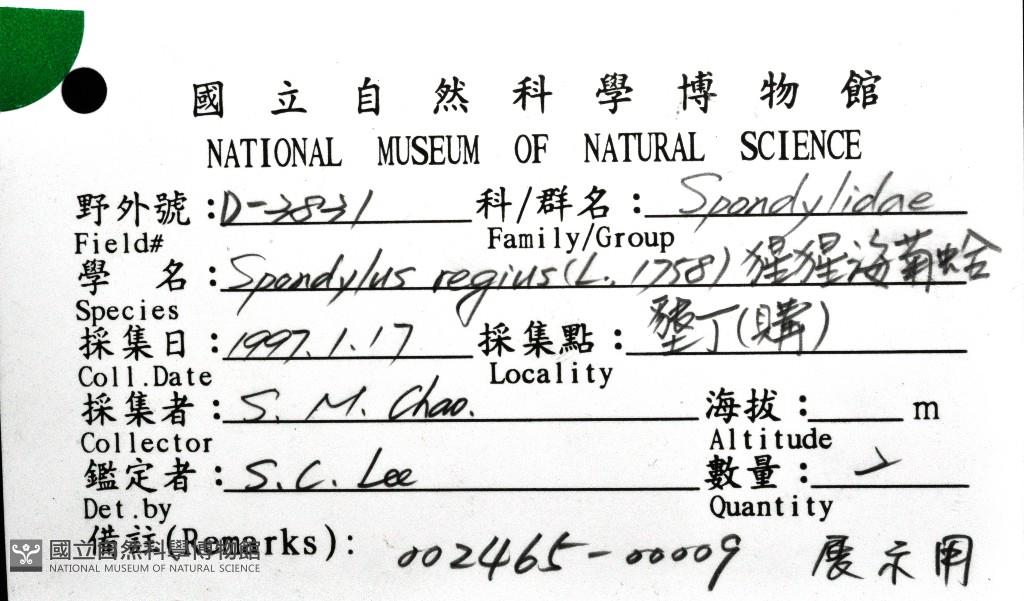 國立自然科學博物館
NATIONAL MUSEUM OF NATURAL SCIENCE
野外號:D-3831 科/群名:Spondylidae
Field# Family/Group
學 名:Spondylus regius (L. 1758) 猩猩海菊蛤
Species
採集日:1997.1.17 採集點:墾丁(購)
Coll.Date Locality
採集者:S. M. Chao. 海拔: m
Collector Altitude
鑑定者:S. C. Lee 數量:
Det.by Quantity
備註(Remarks): 002465-00009 展示用
國立自然科學博物館
NATIONAL MUSEUM OF NATURAL SCIENCE